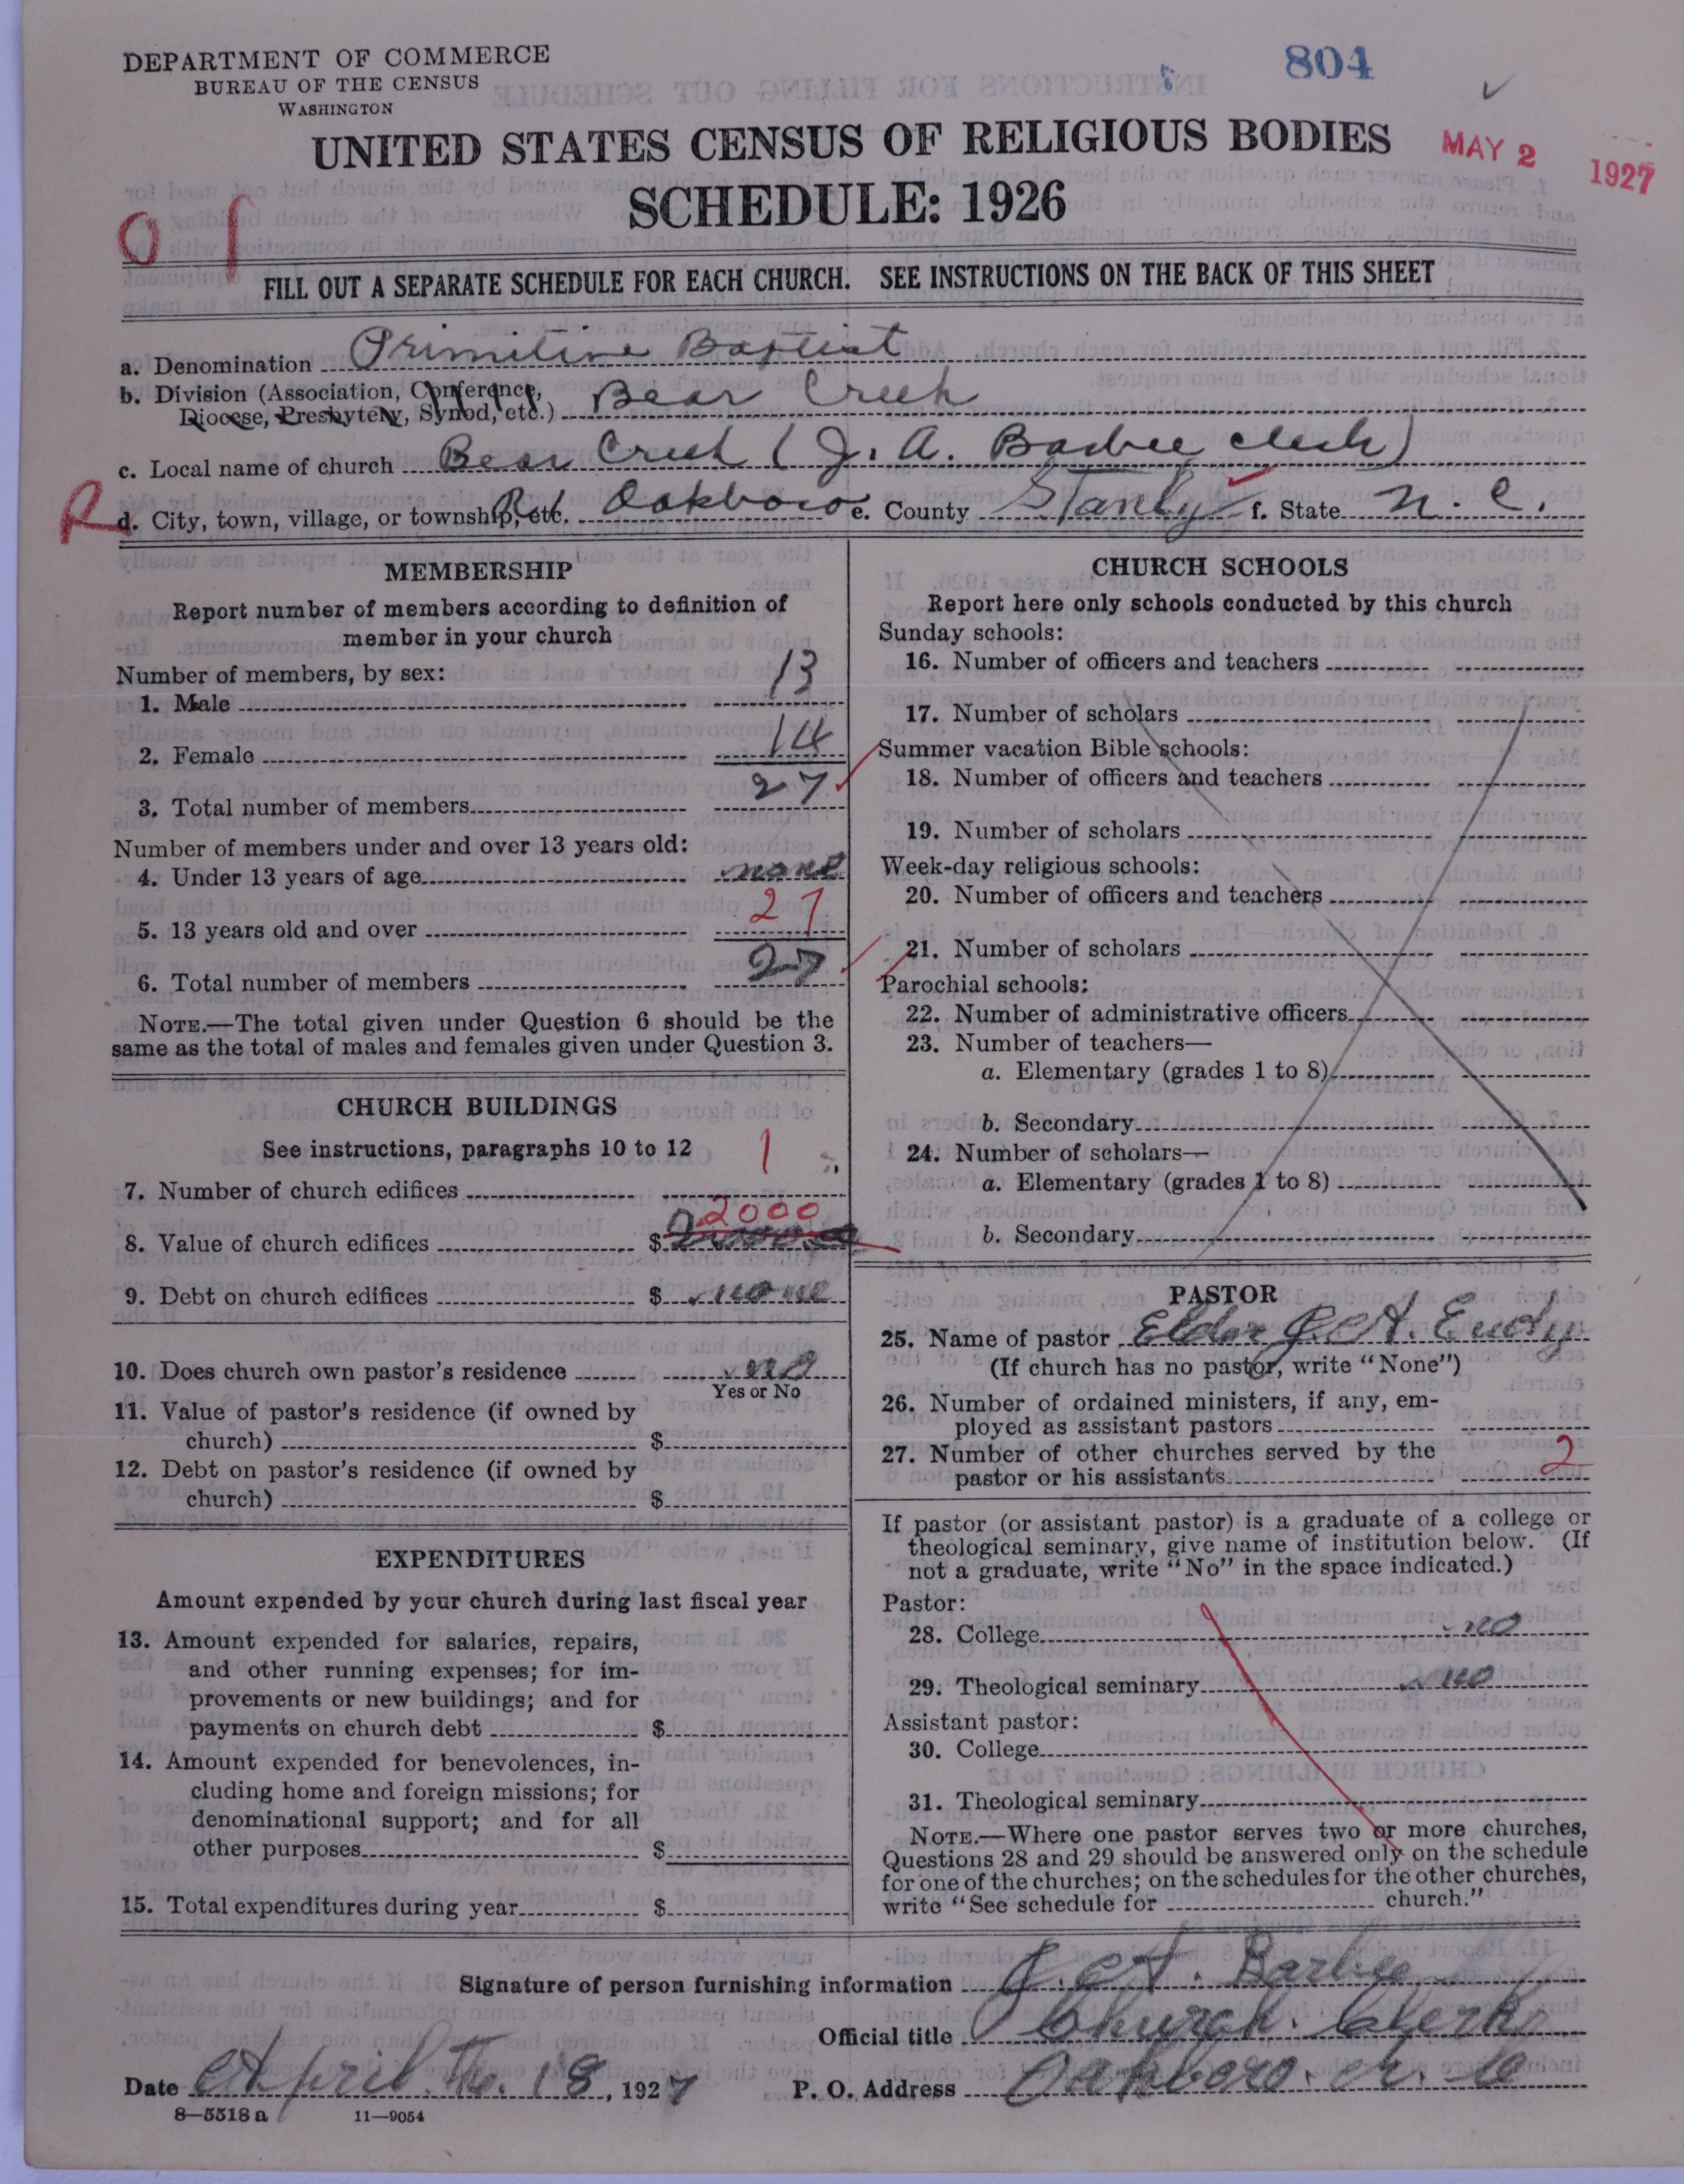 DEPARTMENT OF COMMERCE
BUREAU OF THE CENSUS
WASHINGTON
804
UNITED STATES CENSUS OF RELIGIOUS BODIES
MAY 2 1927
SCHEDULE: 1926
FILL OUT A SEPARATE SCHEDULE FOR EACH CHURCH. SEE INSTRUCTIONS ON THE BACK OF THIS SHEET
a. Denomination Primitive Baptist
b. Division (Association, Conference, Diocese, Presbytery, Synod, etc.) Bear Creek
c. Local name of church Bear Creek (J. A. Barbee clerk)
R d. City, town, village, or township, etc. Oakboro e. County Stanly f. State N. C.
MEMBERSHIP
Report number of members according to definition of
member in your church
Number of members, by sex:
1. Male 13
2. Female 14
3. Total number of members 27
Number of members under and over 13 years old:
4. Under 13 years of age none
5. 13 years old and over 27
6. Total number of members 27
NOTE.—The total given under Question 6 should be the
same as the total of males and females given under Question 3.
CHURCH BUILDINGS
See instructions, paragraphs 10 to 12
7. Number of church edifices 1
8. Value of church edifices $ 2000
9. Debt on church edifices $ none
10. Does church own pastor's residence no
Yes or No
11. Value of pastor's residence (if owned by
church) $
12. Debt on pastor's residence (if owned by
church) $
EXPENDITURES
Amount expended by your church during last fiscal year
13. Amount expended for salaries, repairs,
and other running expenses; for im-
provements or new buildings; and for
payments on church debt $
14. Amount expended for benevolences, in-
cluding home and foreign missions; for
denominational support; and for all
other purposes $
15. Total expenditures during year $
CHURCH SCHOOLS
Report here only schools conducted by this church
Sunday schools:
16. Number of officers and teachers
17. Number of scholars
Summer vacation Bible schools:
18. Number of officers and teachers
19. Number of scholars
Week-day religious schools:
20. Number of officers and teachers
21. Number of scholars
Parochial schools:
22. Number of administrative officers
23. Number of teachers—
a. Elementary (grades 1 to 8)
b. Secondary
24. Number of scholars—
a. Elementary (grades 1 to 8)
b. Secondary
PASTOR
25. Name of pastor Elder J. A. Eudy
(If church has no pastor, write "None")
26. Number of ordained ministers, if any, em-
ployed as assistant pastors
27. Number of other churches served by the
pastor or his assistants 2
If pastor (or assistant pastor) is a graduate of a college or
theological seminary, give name of institution below. (If
not a graduate, write "No" in the space indicated.)
Pastor:
28. College no
29. Theological seminary no
Assistant pastor:
30. College
31. Theological seminary
NOTE.—Where one pastor serves two or more churches,
Questions 28 and 29 should be answered only on the schedule
for one of the churches; on the schedules for the other churches,
write "See schedule for church."
Signature of person furnishing information J. A. Barbee
Official title Church Clerk
Date April The. 18, 1927 P. O. Address Oakboro. N. C
8—5518 a 11—9054